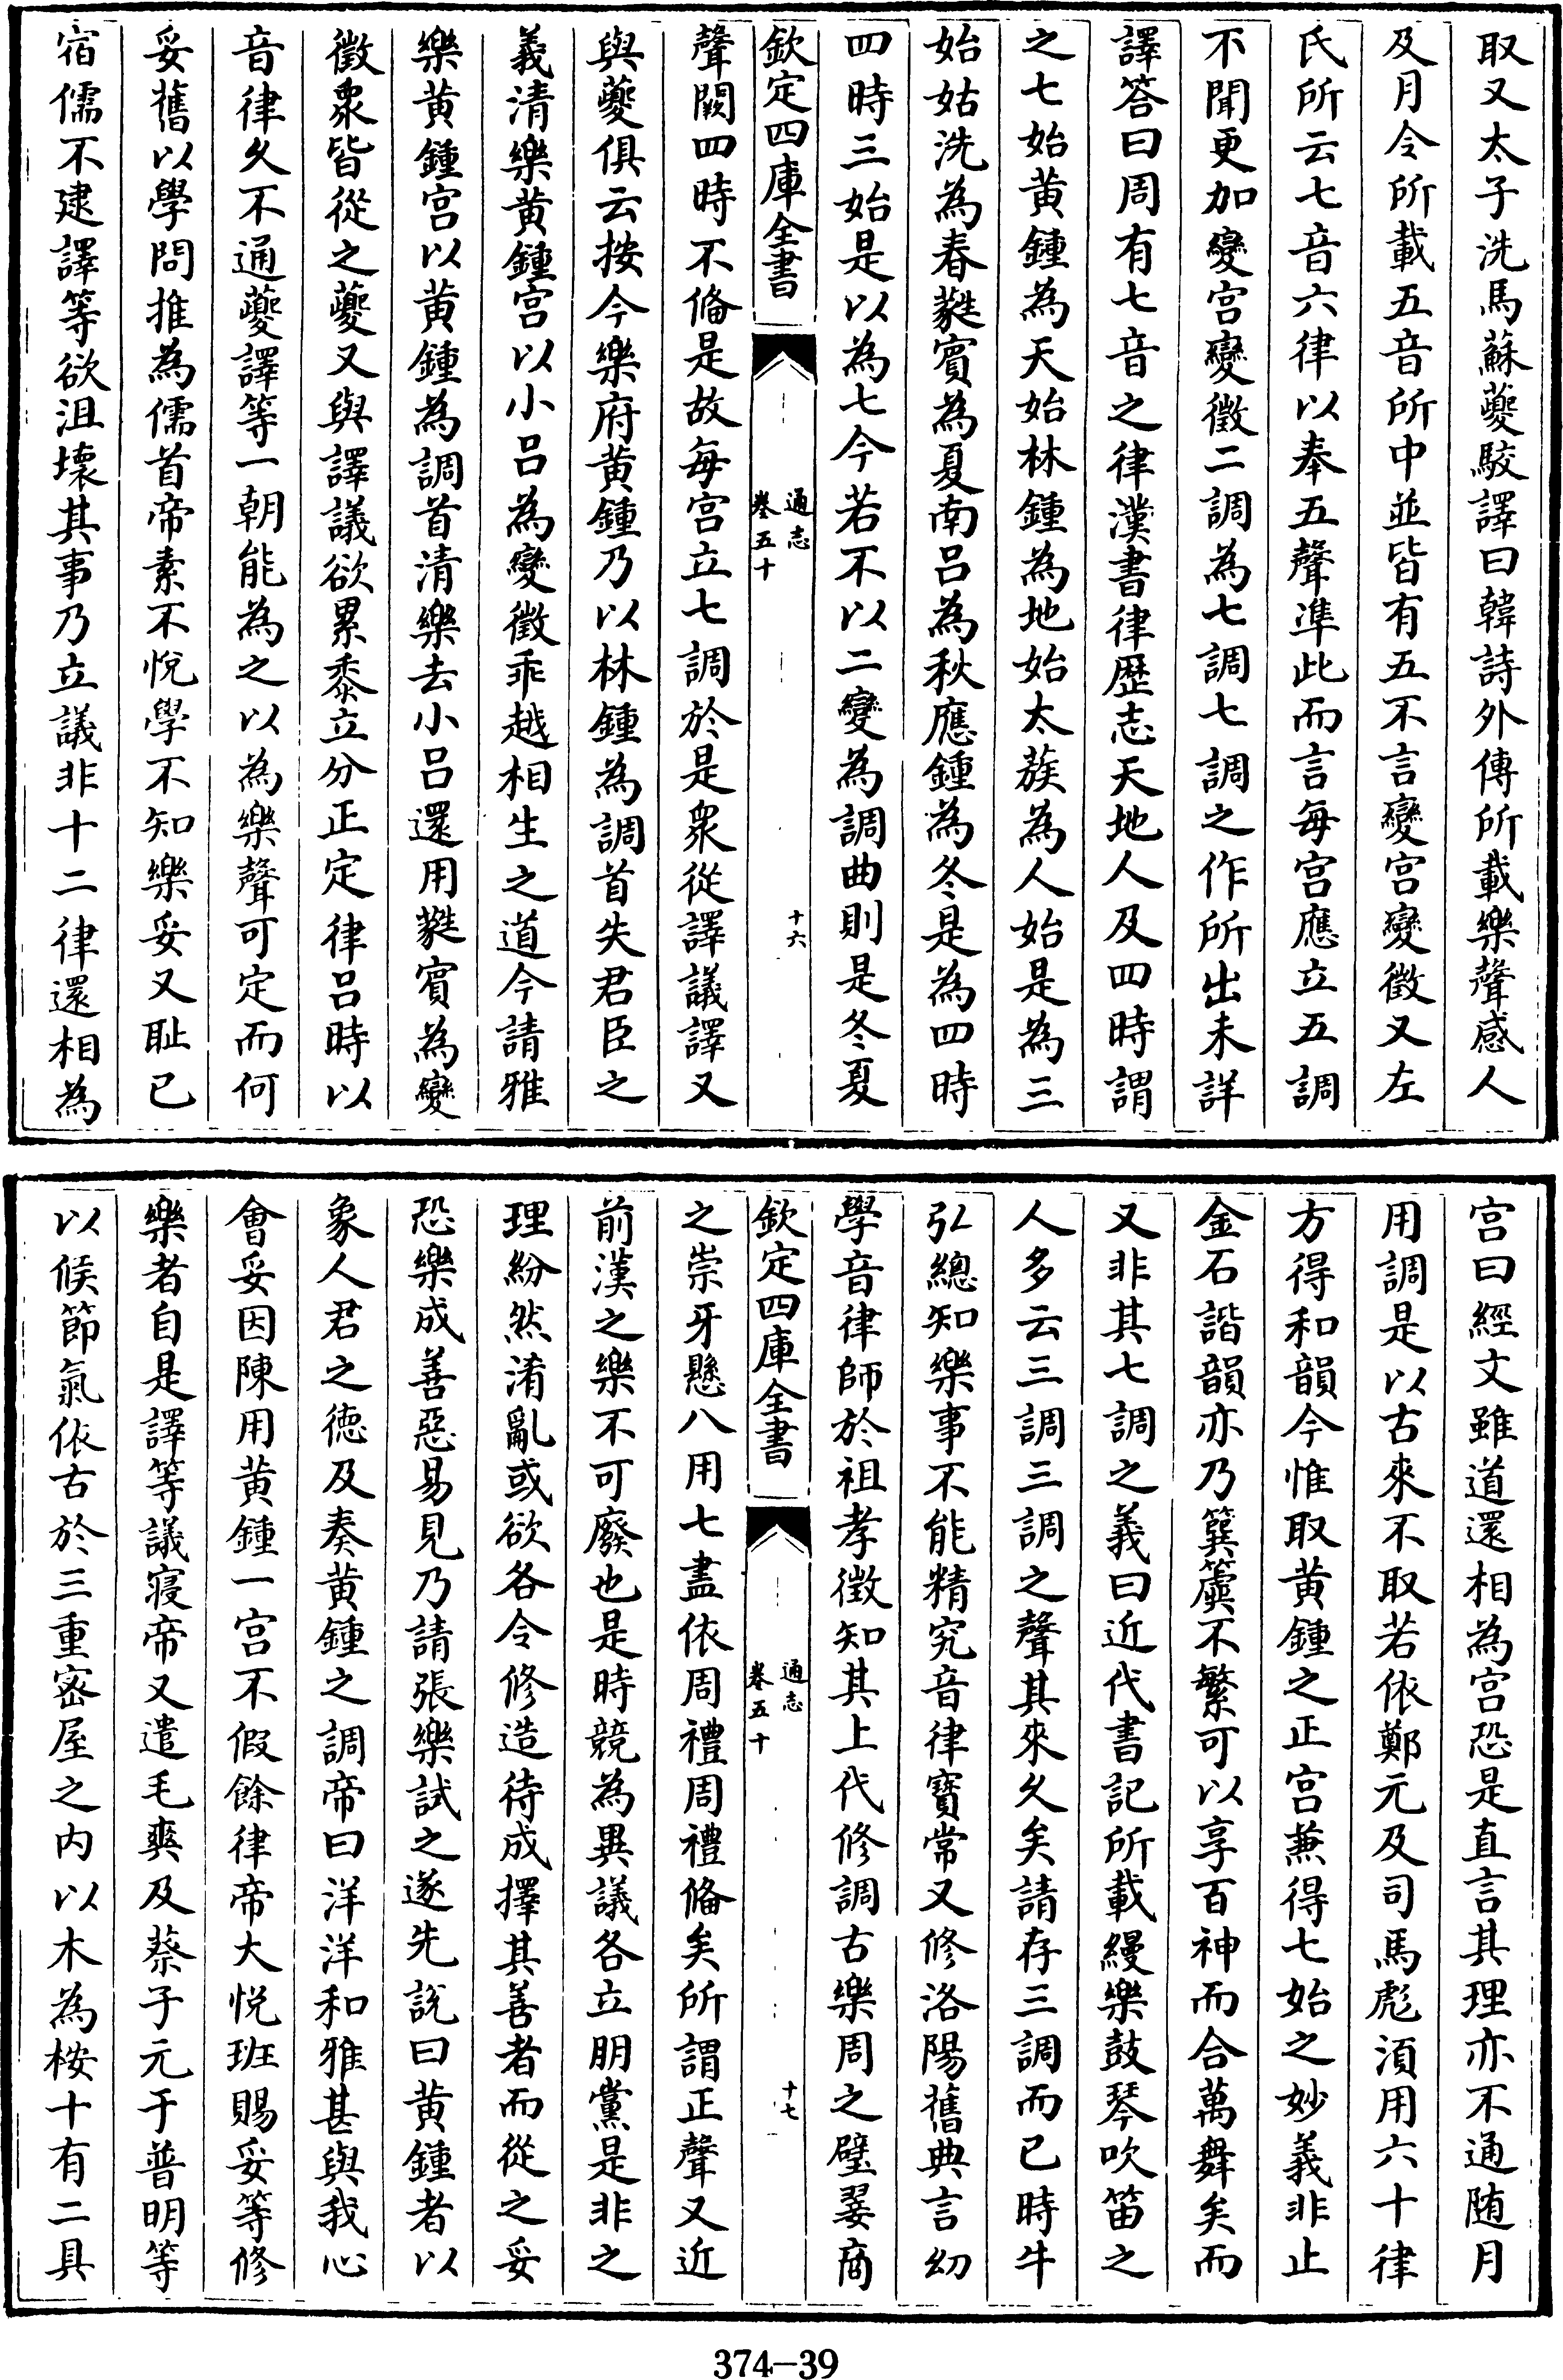 取又太子洗馬蘇夔駮譯曰韓詩外傳所載樂聲感人
及月令所載五音所中並皆有五不言變宫變徵又左
氏所云七音六律以奉五聲凖此而言每宫應立五調
不聞更加變宫變徵二調為七調七調之作所出未詳
譯答曰周有七音之律漢書律歴志天地人及四時謂
之七始黄鍾為天始林鍾為地始太蔟為人始是為三
始姑洗為春蕤賓為夏南吕為秋應鍾為冬是為四時
四時三始是以為七今若不以二變為調曲則是冬夏
欽定四庫全書
通志
卷五十
十六
聲闕四時不備是故每宫立七調於是衆從譯議譯又
與夔俱云按今樂府黄鍾乃以林鍾為調首失君臣之
義清樂黄鍾宫以小吕為變徵乖越相生之道今請雅
樂黄鍾宫以黄鍾為調首清樂去小吕還用蕤賓為變
徵衆皆從之夔又與譯議欲累黍立分正定律吕時以
音律久不通夔譯等一朝能為之以為樂聲可定而何
妥舊以學問推為儒首帝素不悅學不知樂妥又耻已
宿儒不逮譯等欲沮壞其事乃立議非十二律還相為
宫曰經文雖道還相為宫恐是直言其理亦不通随月
用調是以古來不取若依鄭元及司馬彪須用六十律
方得和韻今惟取黄鍾之正宫兼得七始之妙義非止
金石諧韻亦乃簨簴不繁可以享百神而合萬舞矣而
又非其七調之義曰近代書記所載縵樂鼓琴吹笛之
人多云三調三調之聲其來久矣請存三調而已時牛
弘總知樂事不能精究音律寳常又修洛陽舊典言幻
學音律師於祖孝徴知其上代修調古樂周之璧翣商
欽定四庫全書
通志
卷五十
十七
之崇牙懸八用七盡依周禮周禮備矣所謂正聲又近
前漢之樂不可廢也是時競為異議各立朋黨是非之
理紛然淆亂或欲各令修造待成擇其善者而從之妥
恐樂成善惡易見乃請張樂試之遂先說曰黄鍾者以
象人君之德及奏黄鍾之調帝曰洋洋和雅甚與我心
會妥因陳用黄鍾一宫不假餘律帝大悅班賜妥等修
樂者自是譯等議寝帝又遣毛爽及蔡子元于普明等
以候節氣依古於三重宻屋之内以木為桉十有二具
374-39